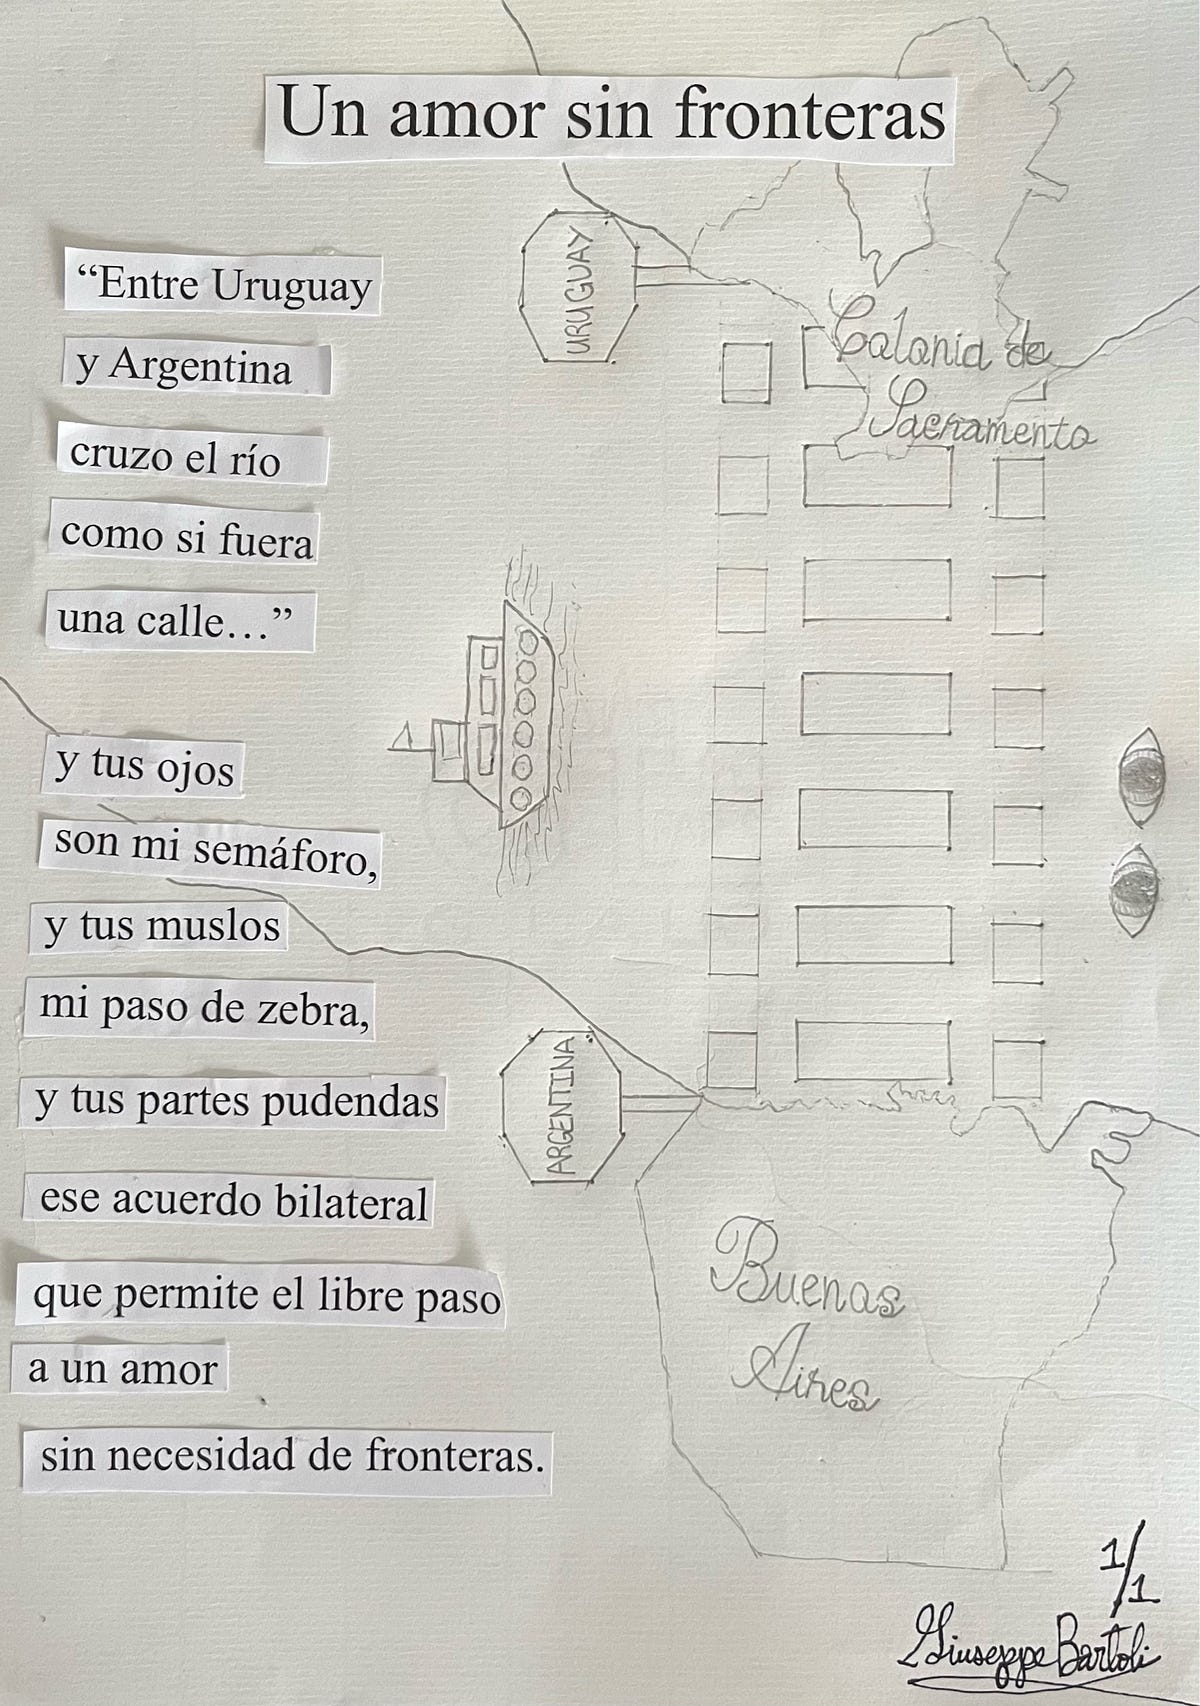 Un amor sin fronteras
“Entre Uruguay
y Argentina
cruzo el río
como si fuera
una calle…”
y tus ojos
son mi semáforo,
y tus muslos
mi paso de zebra,
y tus partes pudendas
ese acuerdo bilateral
que permite el libre paso
a un amor
sin necesidad de fronteras.
URUGUAY
Colonia de
Sacramento
ARGENTINA
Buenos
Aires
1/1
Giuseppe Bartoli